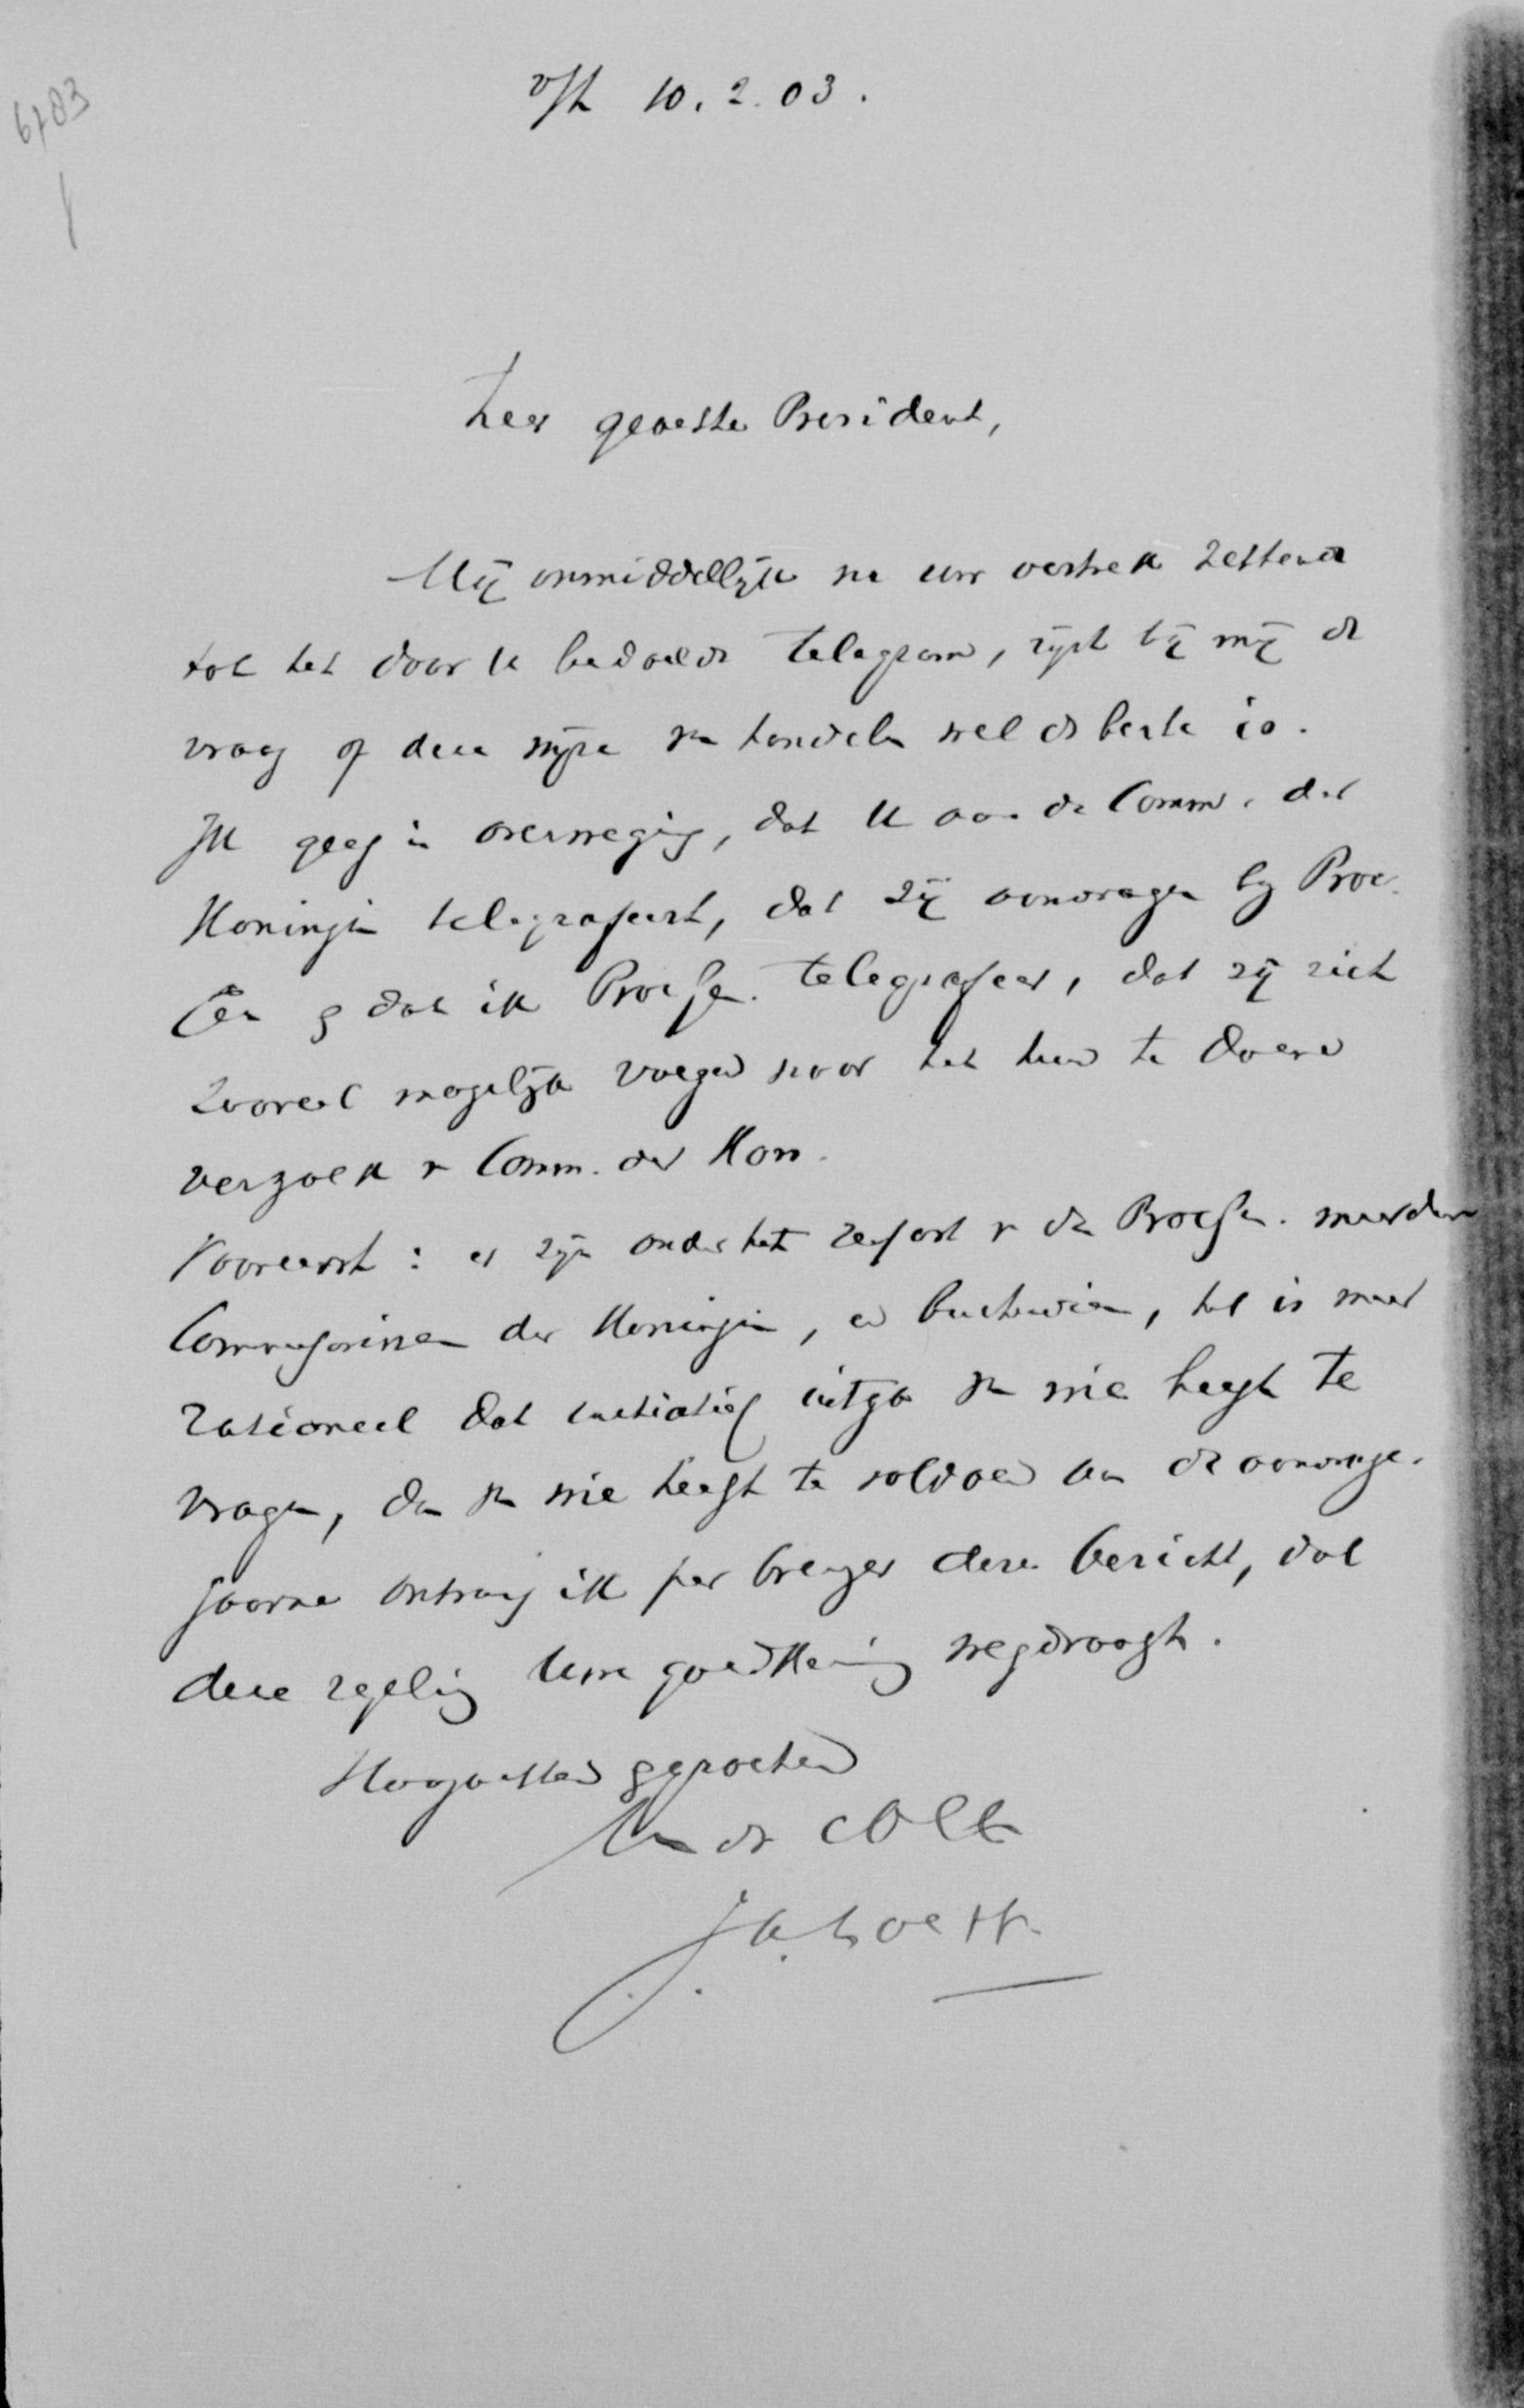 6783
v/h 10.2.03.
Zeer geachte President,
Mij onmiddellijk na uw vertrek zettend
tot het door U bedoelde telegram, rijst bij mij de
vraag of deze wijze van handelen wel de beste is.
Ik geef in overweging, dat U aan de Comm. der
Koningin telegrafeert, dat zij aanvragen bij Proc.
Gen en dat ik Proc Gen. telegrafeer, dat zij zich
zooveel mogelijk voegen naar het hun te doene
verzoek v Comm. der Kon.
Vooreerst: er zijn onder het ressort v de Proc Gen. meerdere
Commissarissen der Koningin, en buitendien, het is meer
rationeel dat initiatief uitga van wie heeft te
vragen, dan van wie heeft te voldoen aan de aanvrage.
Gaarne ontvang ik per brenger dezes bericht, dat
deze regeling Uwe goedkeuring wegdraagt.
Hoogachtend gegroeten
Uw dr
J. A. Loeff